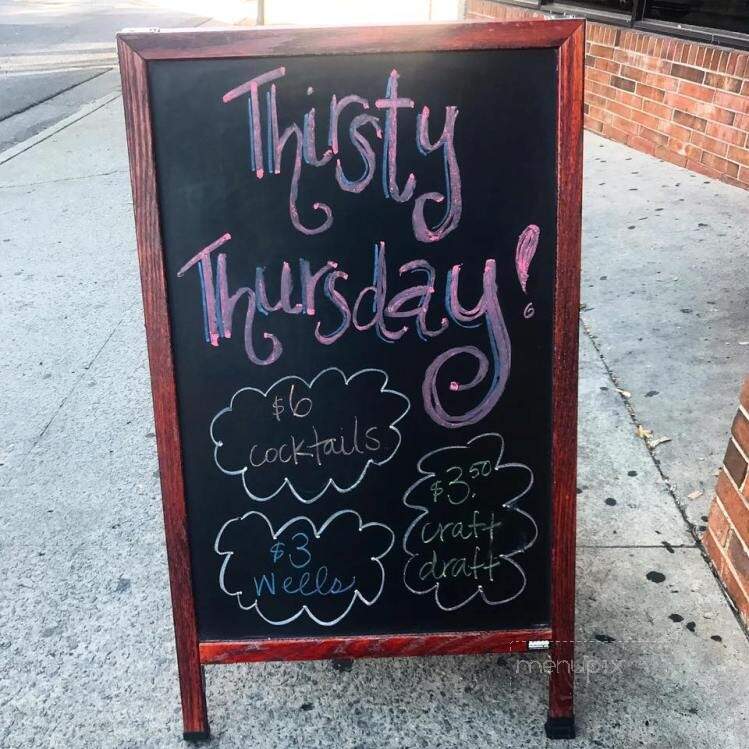 Thirsty
Thursday!
$6
cocktails
$3.50
craft
draft
$3
Wells
menupix